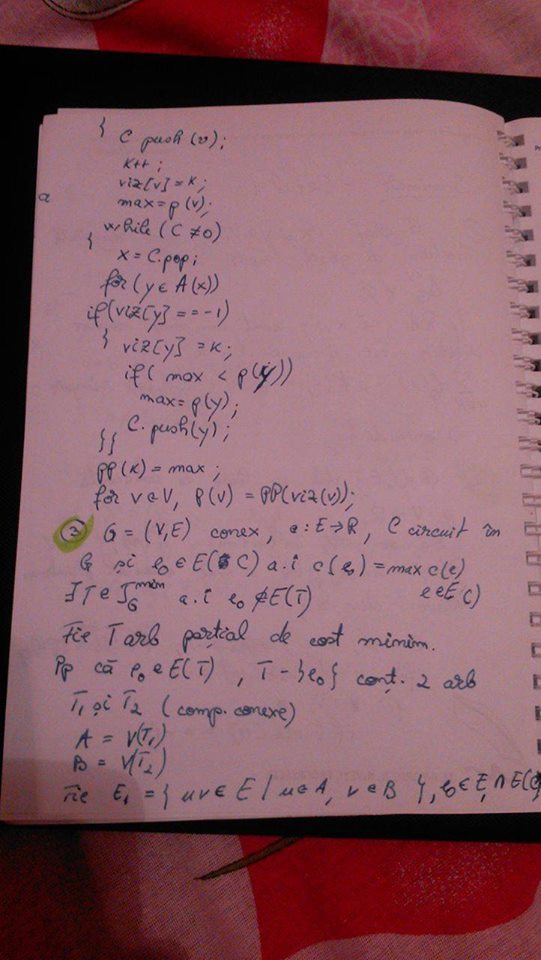 { C push(v);
k++;
viz[v]=k;
max=p(v);
while(C≠0)
{ x=C.pop;
for(y∈A(x))
if(viz[y]==-1)
{ viz[y]=k;
if(max<p(y))
max=p(y);
C.push(y);
}}
pp(k)=max;
for v∈V, p(v)=PP(viz(v));
② G=(V,E) conex, c:E→R, C circuit în
G și e₀∈E(C) a.î c(e₀)=max c(e)
e∈E(C)
∃T∈T_G^min a.î e₀∉E(T)
Fie T arb parțial de cost minim.
Pp că e₀∈E(T), T-{e₀} conț. 2 arb
T₁ și T₂ (comp. conexe)
A=V(T₁)
B=V(T₂)
Fie E₁={uv∈E/u∈A, v∈B}, e₀∈E₁∩E(C)